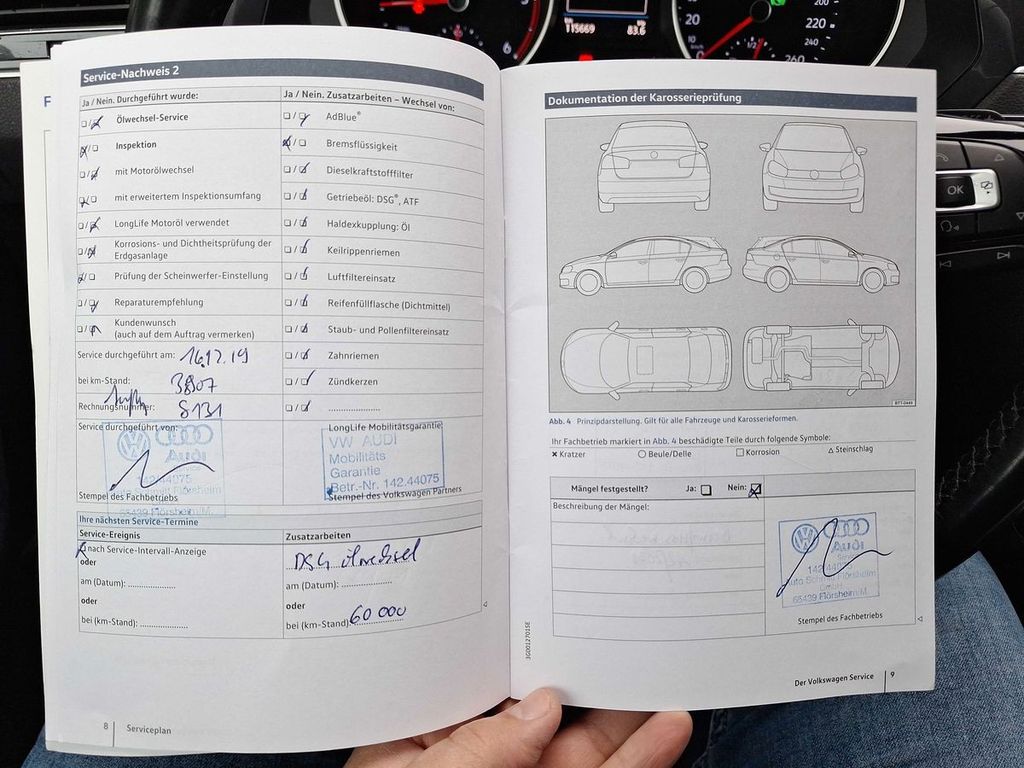 115669 83.6
20 200 220
10 240
0 1/2 260
6
OK
Service-Nachweis 2
Ja / Nein. Durchgeführt wurde:
Ölwechsel-Service
Inspektion
mit Motorölwechsel
mit erweitertem Inspektionsumfang
LongLife Motoröl verwendet
Korrosions- und Dichtheitsprüfung der
Erdgasanlage
Prüfung der Scheinwerfer-Einstellung
Reparaturempfehlung
Kundenwunsch
(auch auf dem Auftrag vermerken)
Service durchgeführt am: 16.12.19
bei km-Stand: 38907
Rechnungsnummer: 8131
Service durchgeführt von:
Audi
Service
142 44075
65439 Flörsheim/M.
Stempel des Fachbetriebs
Ja / Nein. Zusatzarbeiten – Wechsel von:
AdBlue®
Bremsflüssigkeit
Dieselkraftstofffilter
Getriebeöl: DSG®, ATF
Haldexkupplung: Öl
Keilrippenriemen
Luftfiltereinsatz
Reifenfüllflasche (Dichtmittel)
Staub- und Pollenfiltereinsatz
Zahnriemen
Zündkerzen
....................
LongLife Mobilitätsgarantie:
VW AUDI
Mobilitäts
Garantie
Betr.-Nr. 142.44075
Stempel des Volkswagen Partners
Ihre nächsten Service-Termine
Service-Ereignis
nach Service-Intervall-Anzeige
oder
am (Datum): ...............
oder
bei (km-Stand): ...............
Zusatzarbeiten
DSG Ölwechsel
am (Datum): ...............
oder
bei (km-Stand): 60 000
8 Serviceplan
Dokumentation der Karosserieprüfung
BTT-0449
Abb. 4 Prinzipdarstellung. Gilt für alle Fahrzeuge und Karosserieformen.
Ihr Fachbetrieb markiert in Abb. 4 beschädigte Teile durch folgende Symbole:
✕ Kratzer ○ Beule/Delle □ Korrosion △ Steinschlag
Mängel festgestellt? Ja: Nein:
Beschreibung der Mängel:
Audi
Service
65439 Flörsheim/M.
Stempel des Fachbetriebs
3G0012701SE
Der Volkswagen Service 9